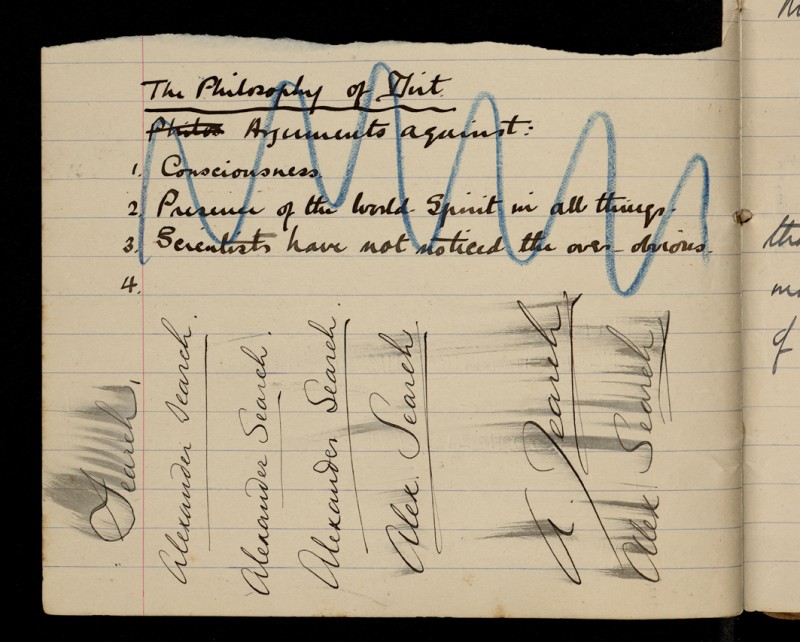 The Philosophy of Dirt.
Philos Arguments against:
1. Consciousness.
2. Presence of the World-Spirit in all things.
3. Scientists have not noticed the over-obvious.
4.
Search.
Alexander Search.
Alexander Search.
Alexander Search.
Alex. Search.
A. Search.
Alex Search
th
m
of